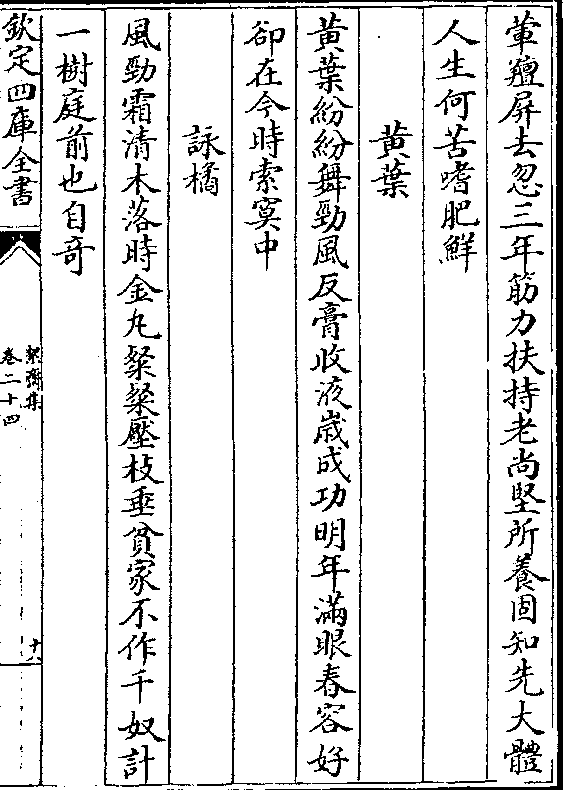 葷羶屏去忽三年筋力扶持老尚堅所養固知先大體
人生何苦嗜肥鮮
黃葉
黃葉紛紛舞勁風反膏收液歳成功明年滿眼春容好
卻在今時索寞中
詠橘
風勁霜清木落時金丸粲粲壓枝垂貧家不作千奴計
一樹庭前也自奇
欽定四庫全書
絜齋集
卷二十四
十六